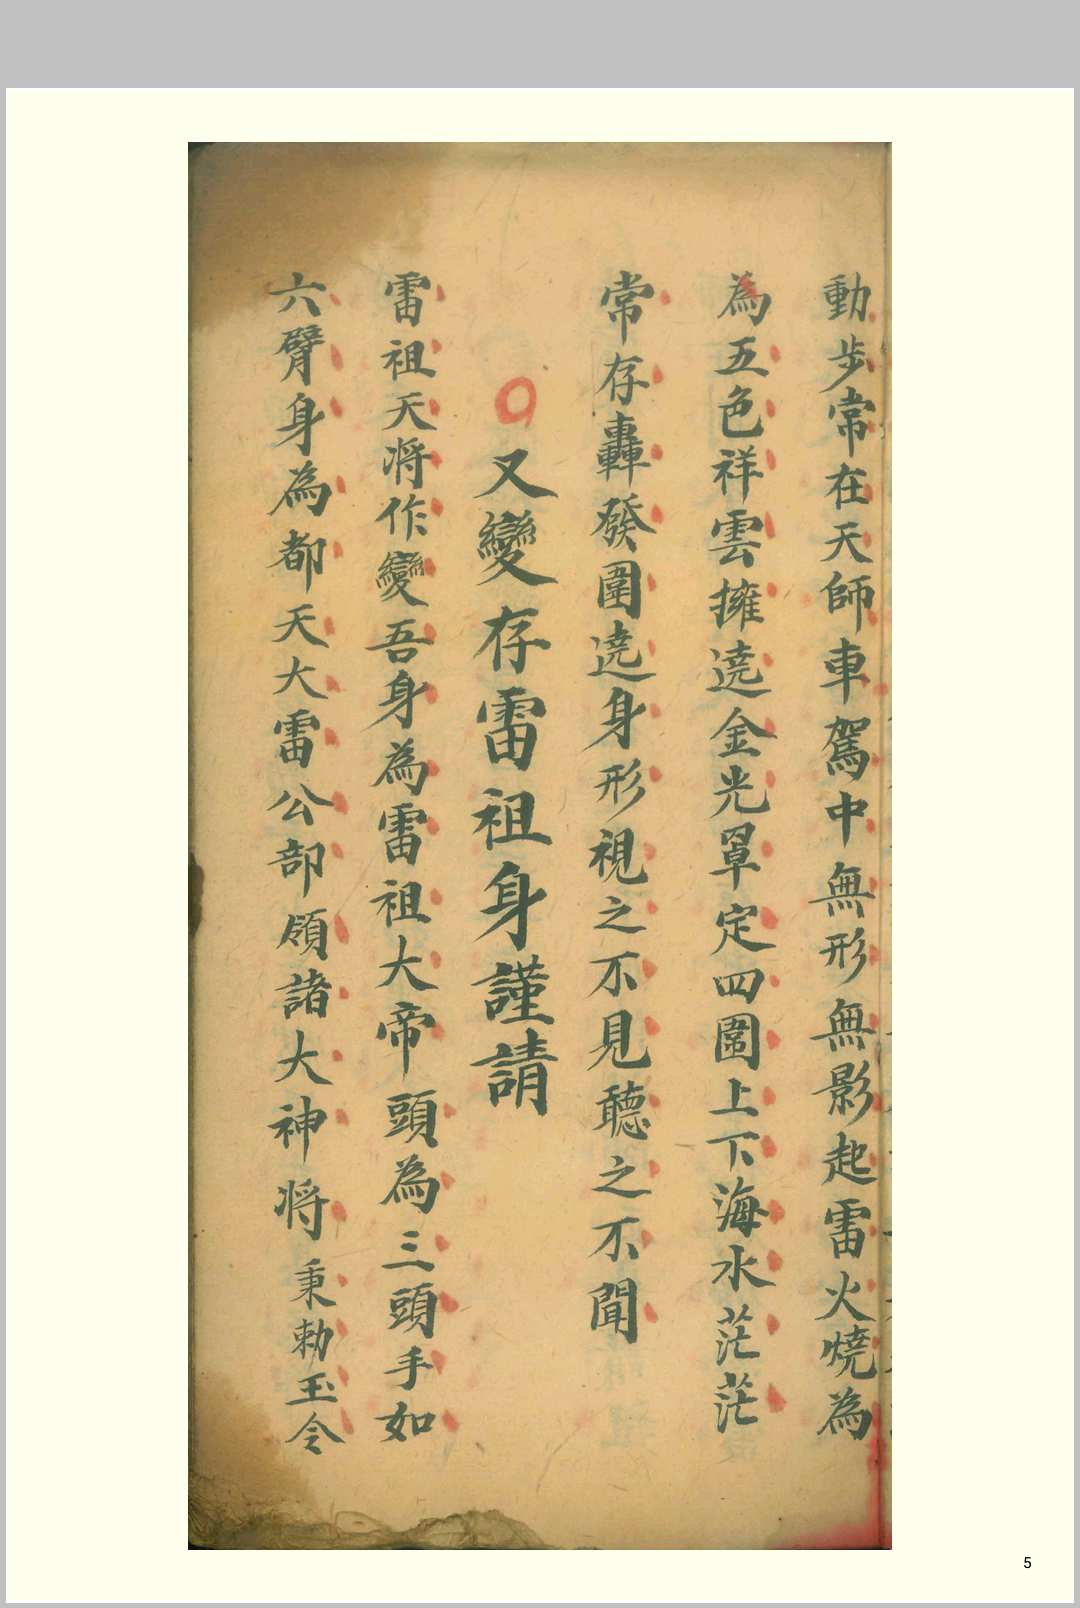 動步常在天師車駕中無形無影起雷火燒為
為五色祥雲擁遶金光罩定四圍上下海水茫茫
常存轟發圍遶身形視之不見聽之不聞
又變存雷祖身謹請
雷祖天将作變吾身為雷祖大帝頭為三頭手如
六臂身為都天大雷公部領諸大神将秉勅玉令
5